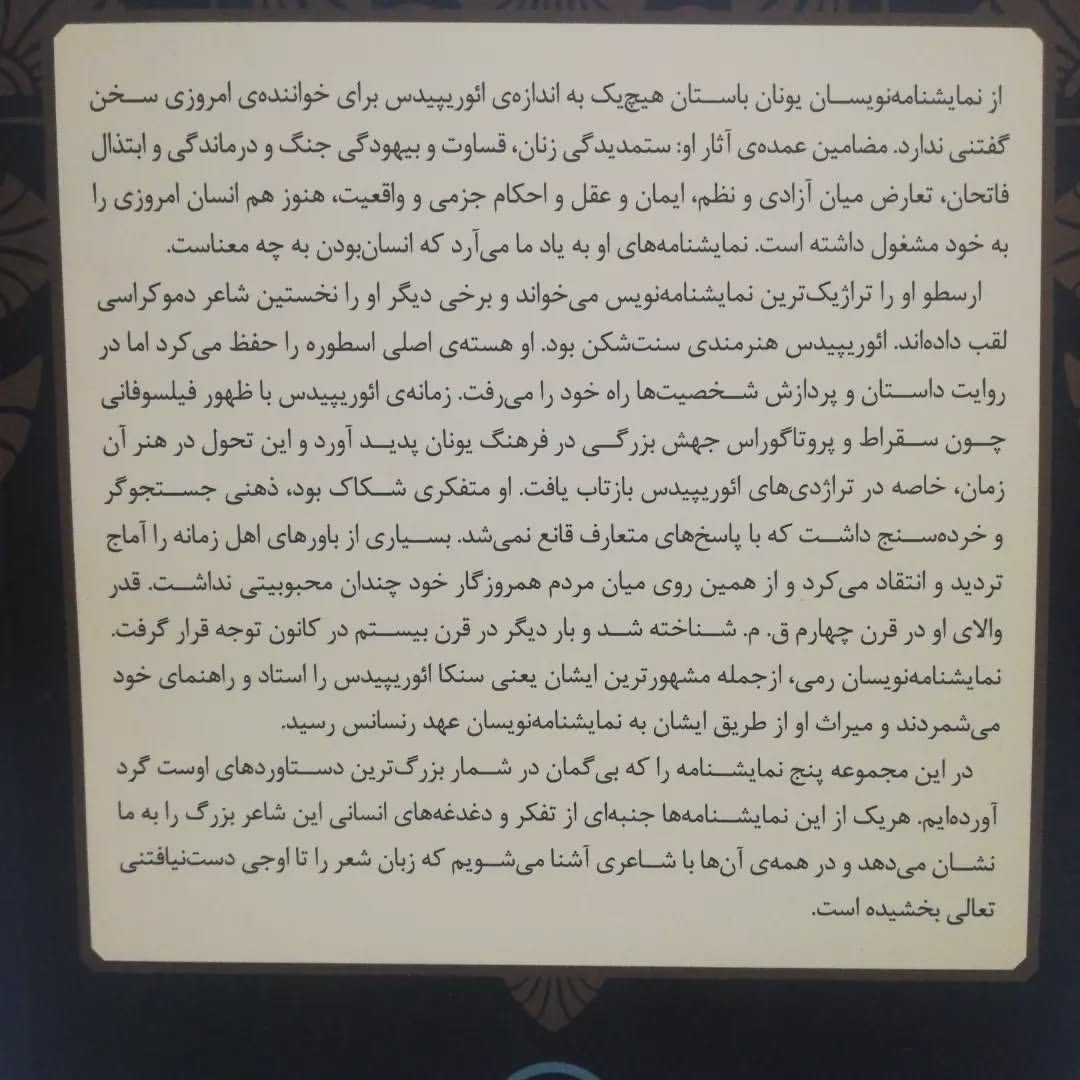 از نمایشنامه‌نویسان یونان باستان هیچ‌یک به اندازه‌ی ائوریپیدس برای خواننده‌ی امروزی سخن
گفتنی ندارد. مضامین عمده‌ی آثار او: ستمدیدگی زنان، قساوت و بیهودگی جنگ و درماندگی و ابتذال
فاتحان، تعارض میان آزادی و نظم، ایمان و عقل و احکام جزمی و واقعیت، هنوز هم انسان امروزی را
به خود مشغول داشته است. نمایشنامه‌های او به یاد ما می‌آرد که انسان‌بودن به چه معناست.
ارسطو او را تراژیک‌ترین نمایشنامه‌نویس می‌خواند و برخی دیگر او را نخستین شاعر دموکراسی
لقب داده‌اند. ائوریپیدس هنرمندی سنت‌شکن بود. او هسته‌ی اصلی اسطوره را حفظ می‌کرد اما در
روایت داستان و پردازش شخصیت‌ها راه خود را می‌رفت. زمانه‌ی ائوریپیدس با ظهور فیلسوفانی
چون سقراط و پروتاگوراس جهش بزرگی در فرهنگ یونان پدید آورد و این تحول در هنر آن
زمان، خاصه در تراژدی‌های ائوریپیدس بازتاب یافت. او متفکری شکاک بود، ذهنی جستجوگر
و خرده‌سنج داشت که با پاسخ‌های متعارف قانع نمی‌شد. بسیاری از باورهای اهل زمانه را آماج
تردید و انتقاد می‌کرد و از همین روی میان مردم همروزگار خود چندان محبوبیتی نداشت. قدر
والای او در قرن چهارم ق. م. شناخته شد و بار دیگر در قرن بیستم در کانون توجه قرار گرفت.
نمایشنامه‌نویسان رمی، ازجمله مشهورترین ایشان یعنی سنکا ائوریپیدس را استاد و راهنمای خود
می‌شمردند و میراث او از طریق ایشان به نمایشنامه‌نویسان عهد رنسانس رسید.
در این مجموعه پنج نمایشنامه را که بی‌گمان در شمار بزرگ‌ترین دستاوردهای اوست گرد
آورده‌ایم. هریک از این نمایشنامه‌ها جنبه‌ای از تفکر و دغدغه‌های انسانی این شاعر بزرگ را به ما
نشان می‌دهد و در همه‌ی آن‌ها با شاعری آشنا می‌شویم که زبان شعر را تا اوجی دست‌نیافتنی
تعالی بخشیده است.